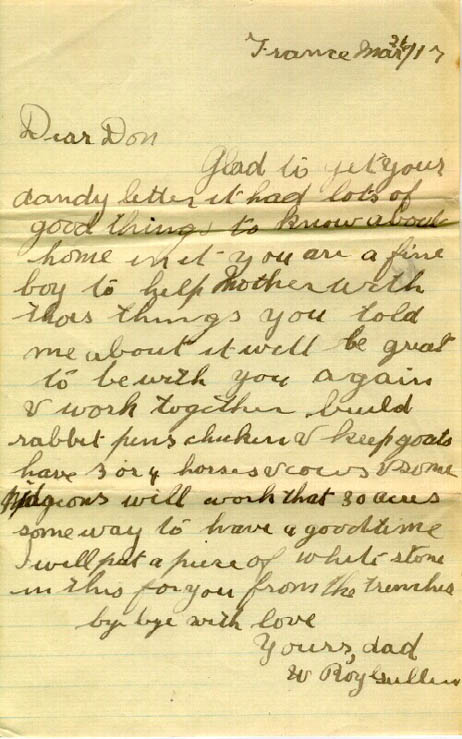 France Mar 26/17
Dear Don
Glad to get your
dandy letter it had lots of
good things to know about
home in it you are a fine
boy to help Mother with
thoes things you told
me about it will be great
to be with you again
& work together build
rabbit pens chicken & keep goats
have 3 or 4 horses & cows & some
pidgeons will work that 80 acres
some way to have a good time
I will put a piece of white stone
in this for you from the trenches
bye bye with love
Yours, dad
W Roy Gullen